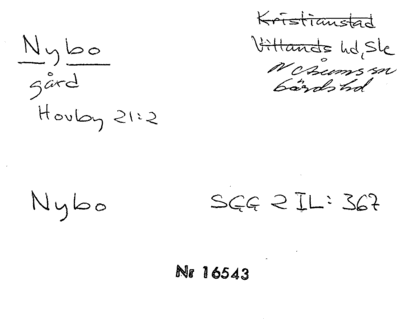 Nybo
gård
Hovby 21:2
Kristianstad
Villands hd, Sk
N Åsums sn
Gärds hd
Nybo
SGG 2 IL: 367
Nr 16543